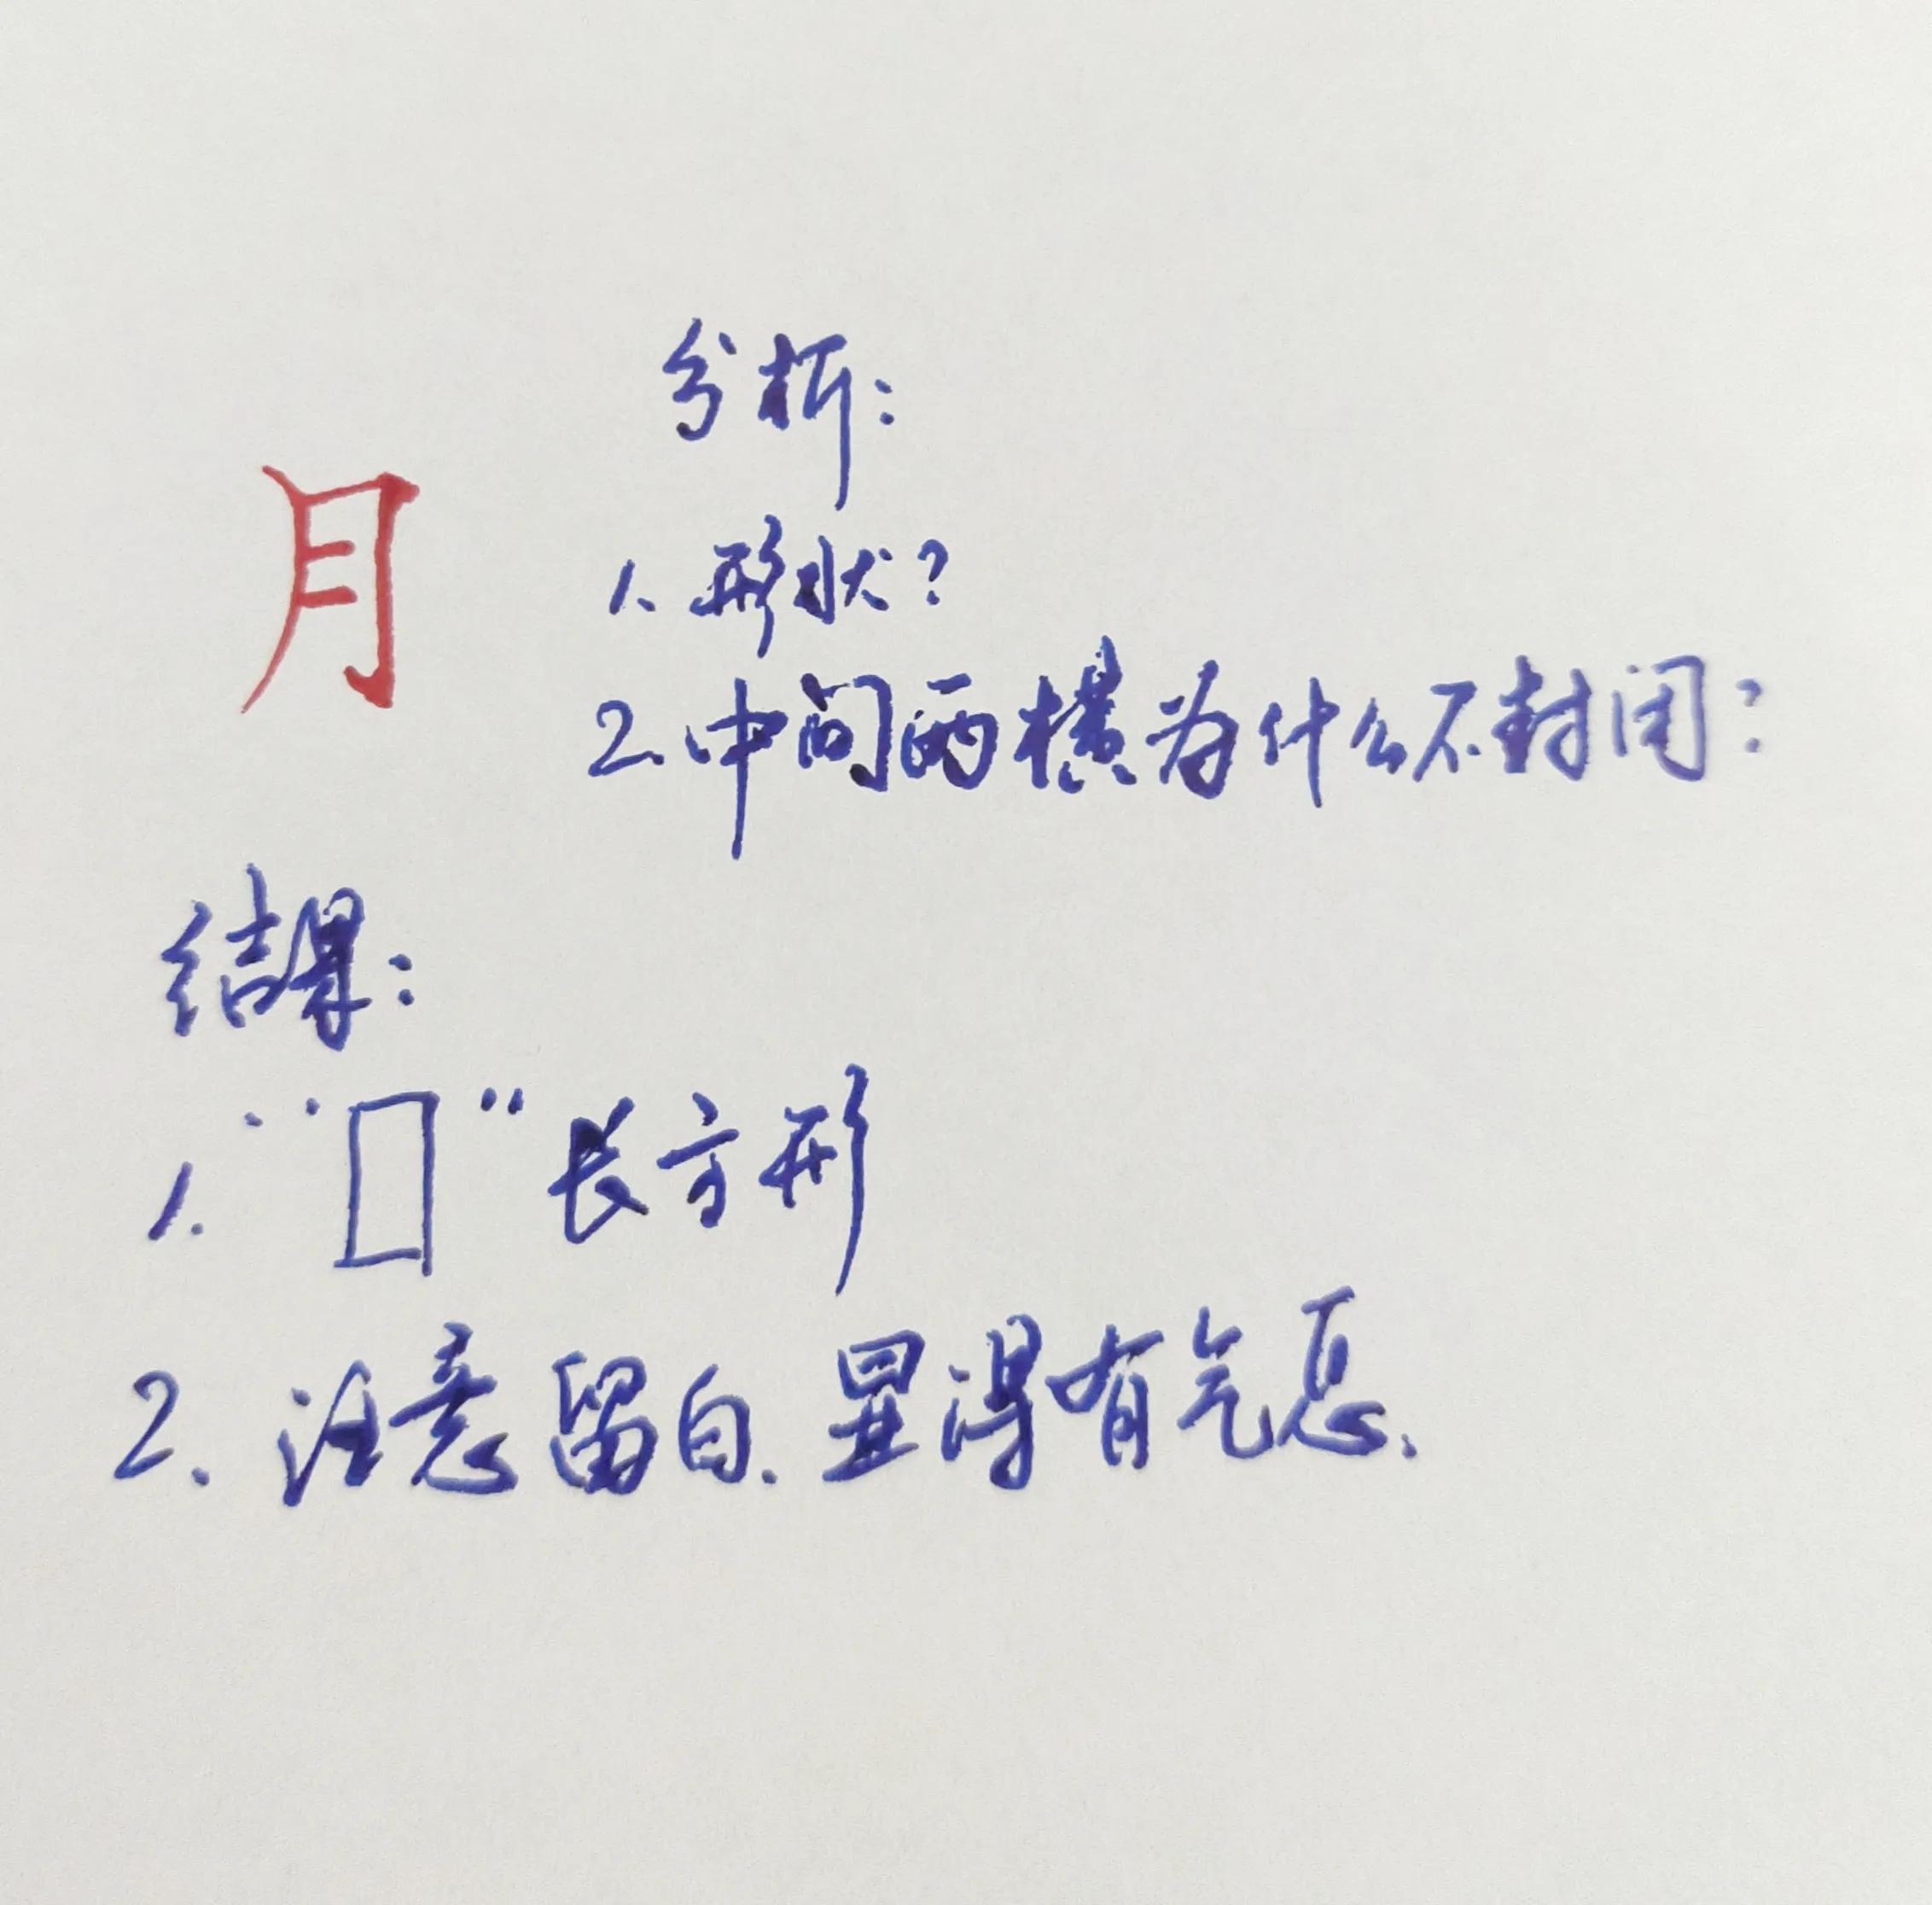 分析:
月
1. 形状?
2. 中间两横为什么不封闭?
结果:
1. "▯" 长方形
2. 注意留白.显得有气息.